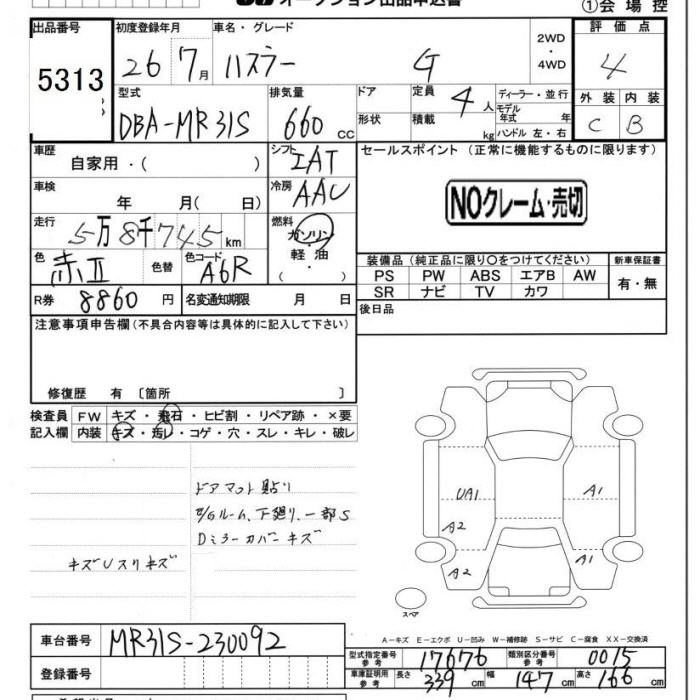 ①会場控
出品番号 初度登録年月 車名・グレード 2WD ・ 4WD 評価点
5313 26 7月 ハスラー G 4
型式 排気量 ドア 定員 4 人 ディーラー・並行 外装 内装
DBA-MR31S 660 cc 形状 積載 kg モデル年式 年 ハンドル 左・右 C B
車歴 自家用・( ) シフト IAT セールスポイント (正常に機能するものに限ります)
車検 年 月( 日) 冷房 AAC NOクレーム・売切
走行 5万8千745km 燃料 ガソリン・軽油・
色 赤II 色替 色コード A6R 装備品(純正品に限り○をつけてください) 新車保証書
PS PW ABS エアB AW 有・無
SR ナビ TV カワ
R券 8860 円 名変通知期限 月 日 後日品
注意事項申告欄(不具合内容等は具体的に記入して下さい)
修復歴 有〔箇所 〕
検査員 FW キズ・飛石・ヒビ割・リペア跡・×要
記入欄 内装 キズ・汚レ・コゲ・穴・スレ・キレ・破レ
ドアマット貼り
E/Gルーム、下廻り、一部S
Dミラーカバーキズ
キズUスリキズ
UA1 A1
A2
A2 A1
スペア
A-キズ E-エクボ U-凹み W-補修跡 S-サビ C-腐食 XX-交換済
車台番号 MR31S-230092
型式指定番号 参考 17676 類別区分番号 参考 0015
登録番号 車庫証明用 参考 長さ 339 cm 幅 147 cm 高さ 166 cm